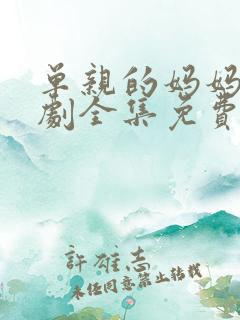 单亲的妈妈
劇全集免費
許雄志
未经同意禁止转载